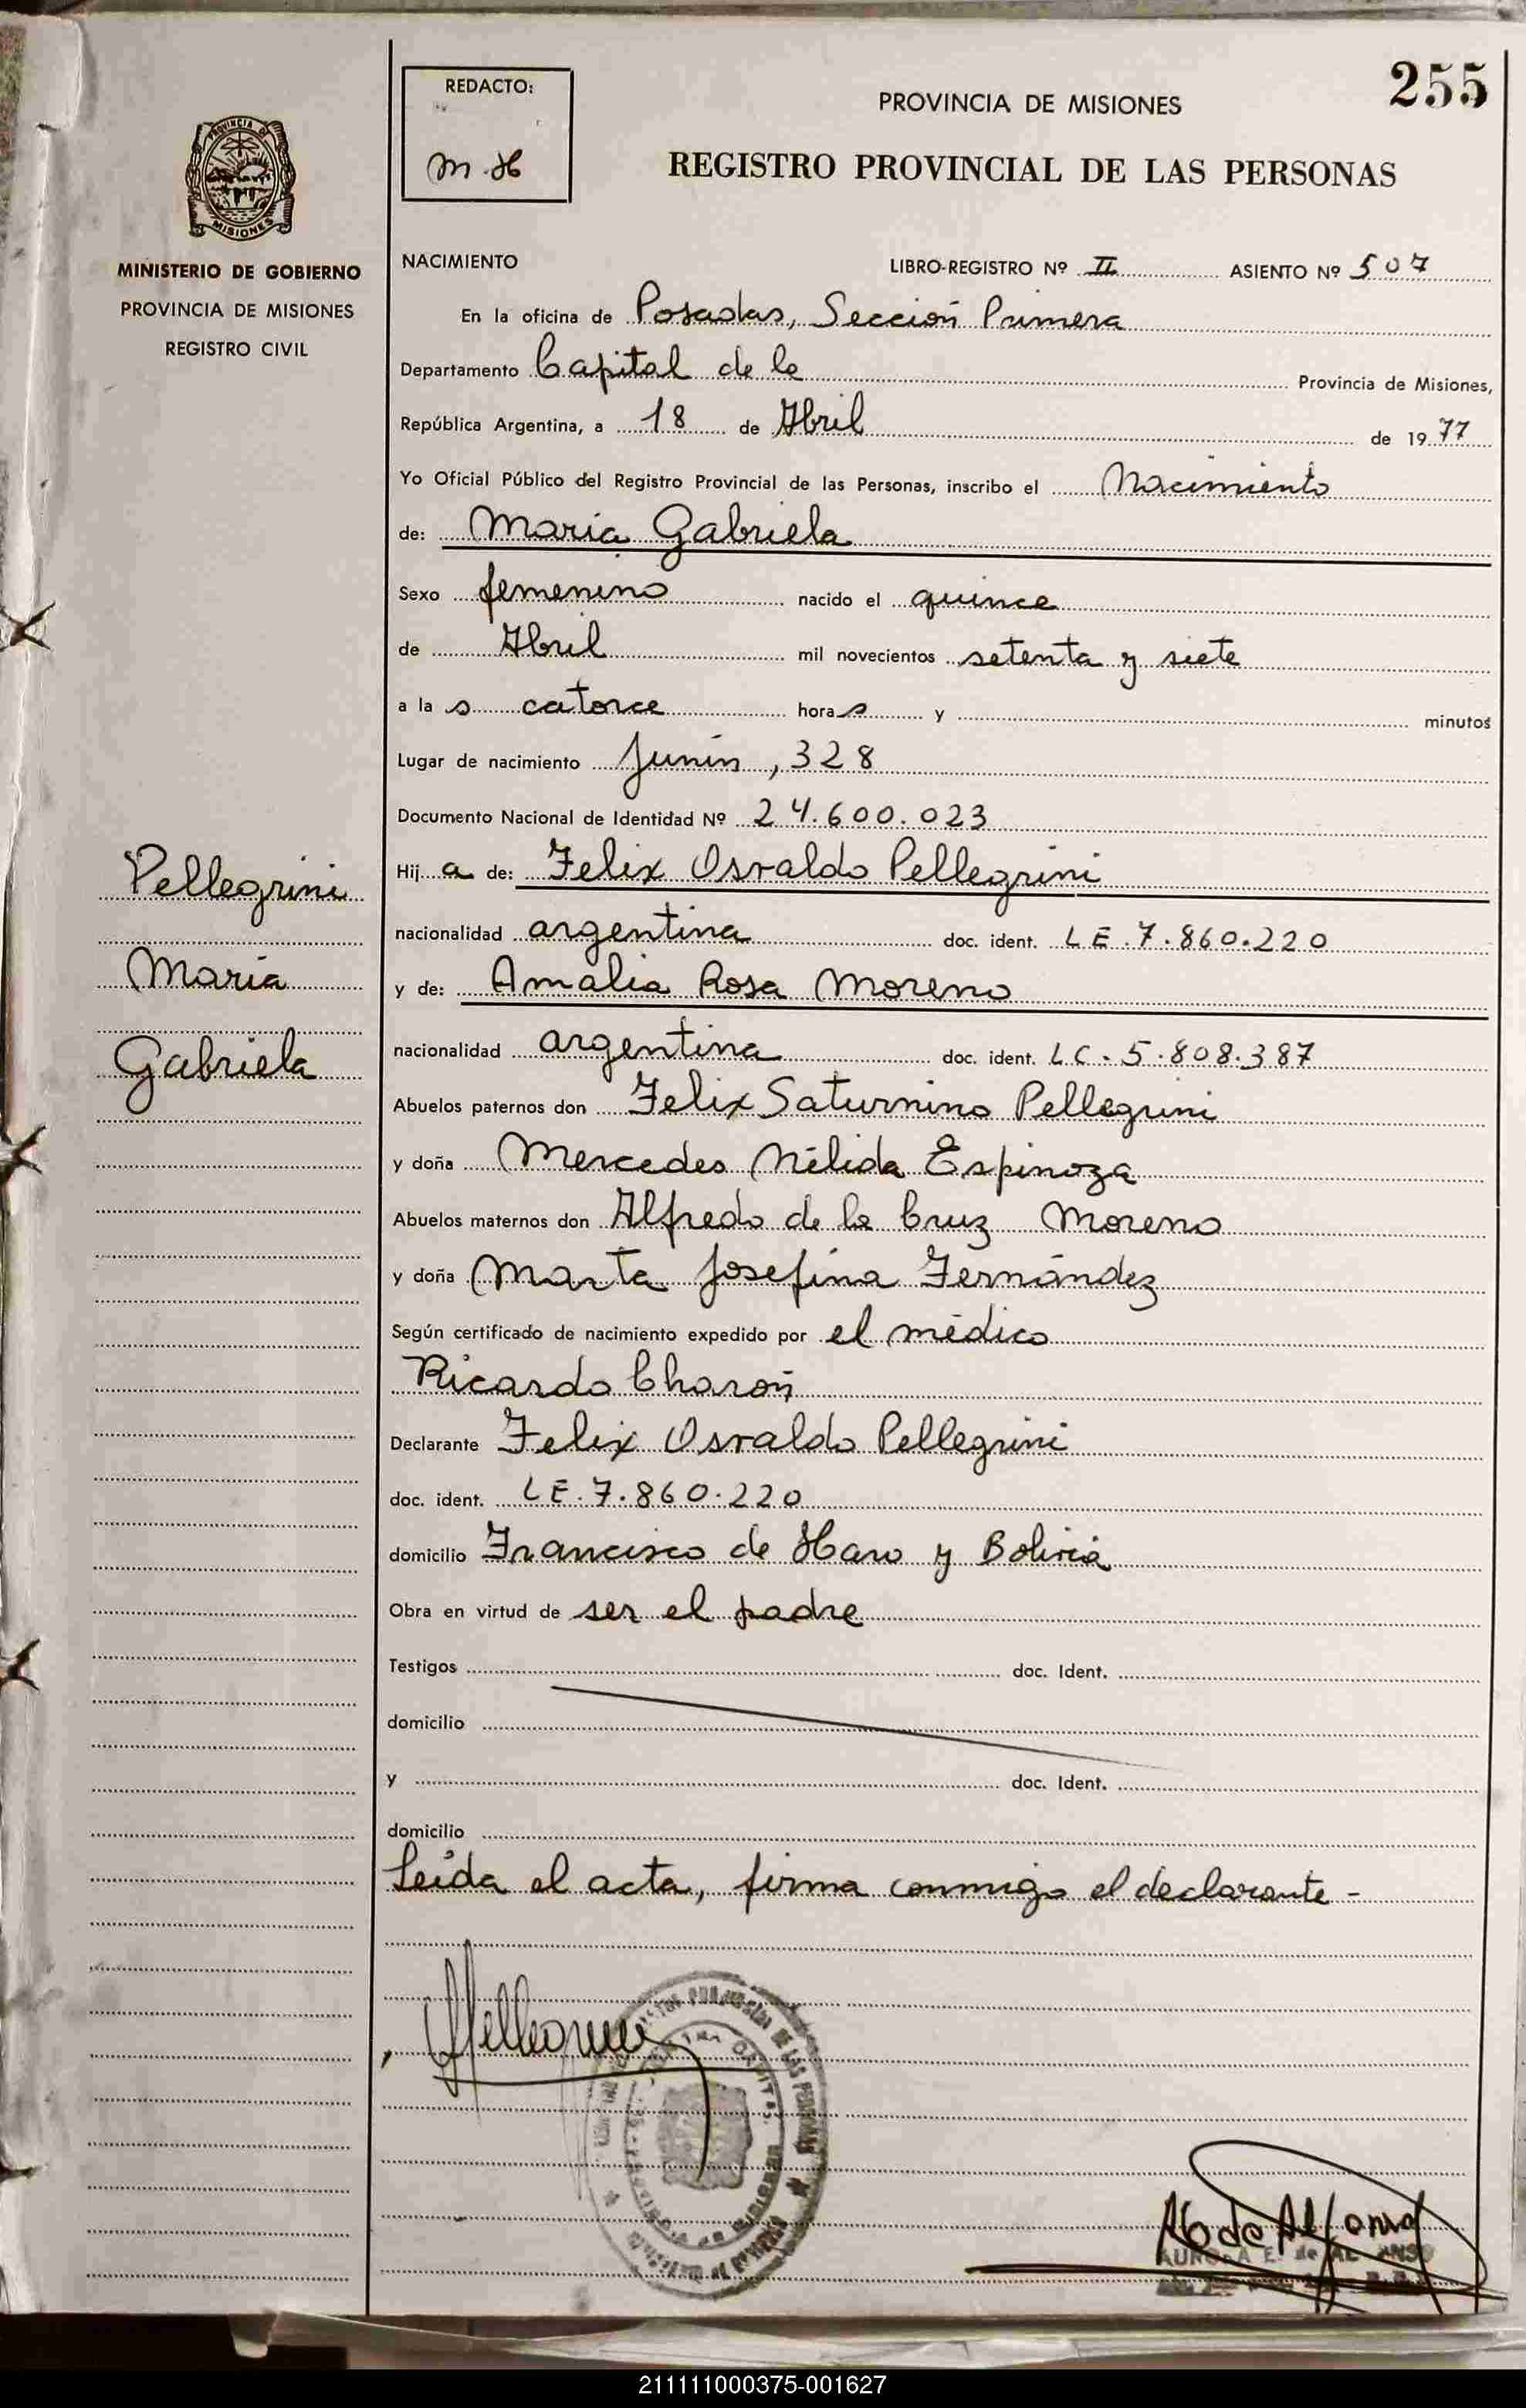 255
REDACTO:
M.H
PROVINCIA DE MISIONES
REGISTRO PROVINCIAL DE LAS PERSONAS
PROVINCIA DE
MISIONES
MINISTERIO DE GOBIERNO
PROVINCIA DE MISIONES
REGISTRO CIVIL
NACIMIENTO LIBRO-REGISTRO Nº II ASIENTO Nº 507
En la oficina de Posadas, Sección Primera
Departamento Capital de la Provincia de Misiones,
República Argentina, a 18 de Abril de 1977
Yo Oficial Público del Registro Provincial de las Personas, inscribo el Nacimiento
de: María Gabriela
Sexo femenino nacido el quince
de Abril mil novecientos setenta y siete
a la s catorce hora s y minutos
Lugar de nacimiento Junín, 328
Documento Nacional de Identidad Nº 24.600.023
Hij a de: Felix Osvaldo Pellegrini
nacionalidad argentina doc. ident. LE.7.860.220
y de: Amalia Rosa Moreno
nacionalidad argentina doc. ident. LC.5.808.387
Abuelos paternos don Felix Saturnino Pellegrini
y doña Mercedes Nélida Espinoza
Abuelos maternos don Alfredo de la Cruz Moreno
y doña Marta Josefina Fernández
Según certificado de nacimiento expedido por el médico
Ricardo
Declarante Felix Osvaldo Pellegrini
doc. ident. LE.7.860.220
domicilio Francisco de Haro y Bolivia
Obra en virtud de ser el padre
Testigos doc. Ident.
domicilio
y doc. Ident.
domicilio
Leída el acta, firma conmigo el declarante -
Pellegrini
María
Gabriela
211111000375-001627